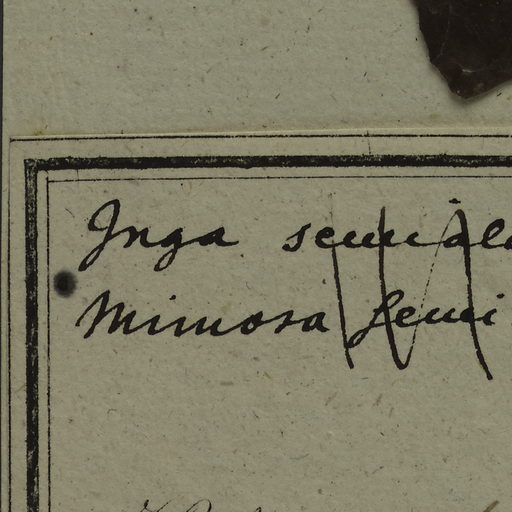 Inga semiala
Mimosa semi